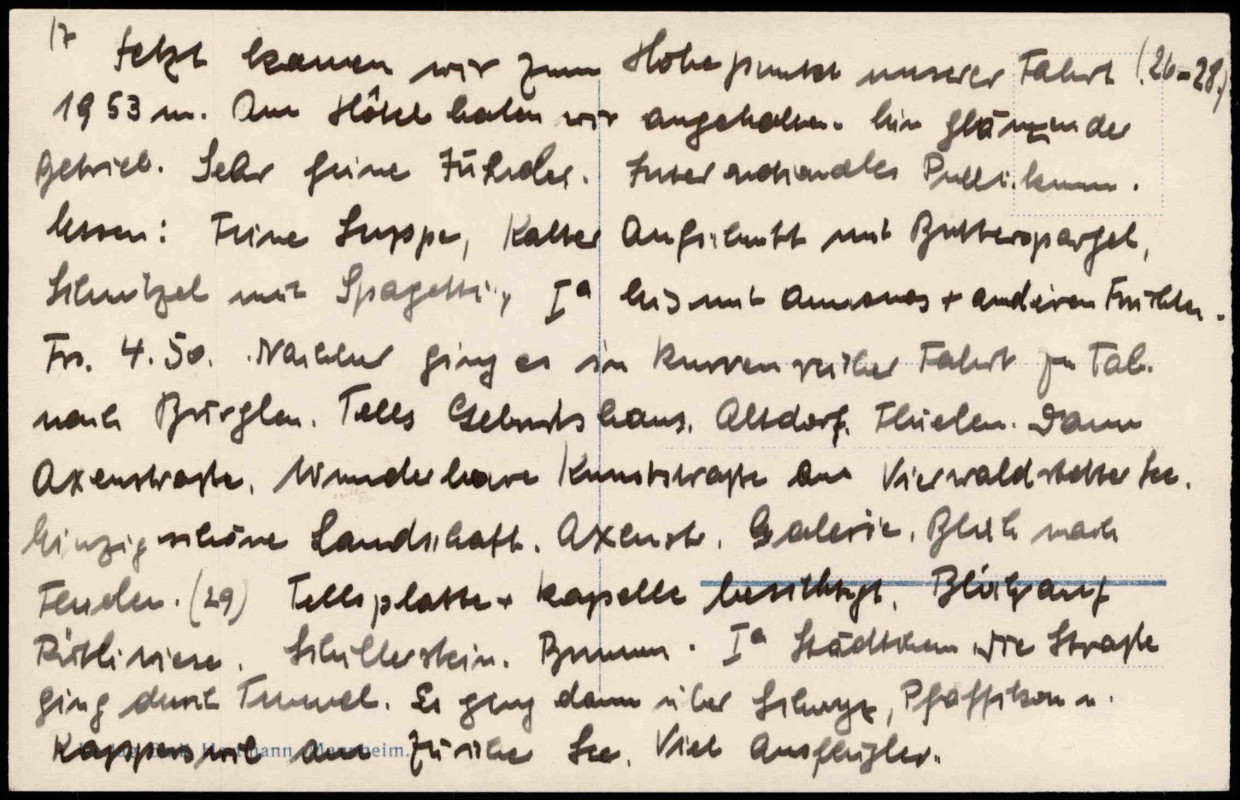 17 Jetzt kamen wir zum Höhepunkt unserer Fahrt (26-28.)
1953 m. Am Hôtel haben wir angehalten. Ein glänzender
Betrieb. Sehr feine Züricher. Internationales Publikum.
Essen: Feine Suppe, Kalter Aufschnitt mit Butterspargel,
Schnitzel mit Spagetti, Iª Eis mit Annanas + anderen Früchten.
Frs. 4.50. Nachher ging es in kurvenreicher Fahrt zu Tal.
nach Bürglen. Tells Geburtshaus. Altdorf. Flüelen. Dann
Axenstraße. Wunderbare Kunststraße am Vierwaldstätter See.
Einzig schöne Landschaft. Axenstr. Galerie. Blick nach
Flüelen. (29) Tellsplatte + Kapelle besichtigt. Blick auf
Rütliwiese. Schillerstein. Brunnen. Iª Städtchen. Die Straße
ging durch Tunnel. Es ging dann über Schwyz, Pfäffikon n.
Rapperswil am Züricher See. Viele Ausflügler.